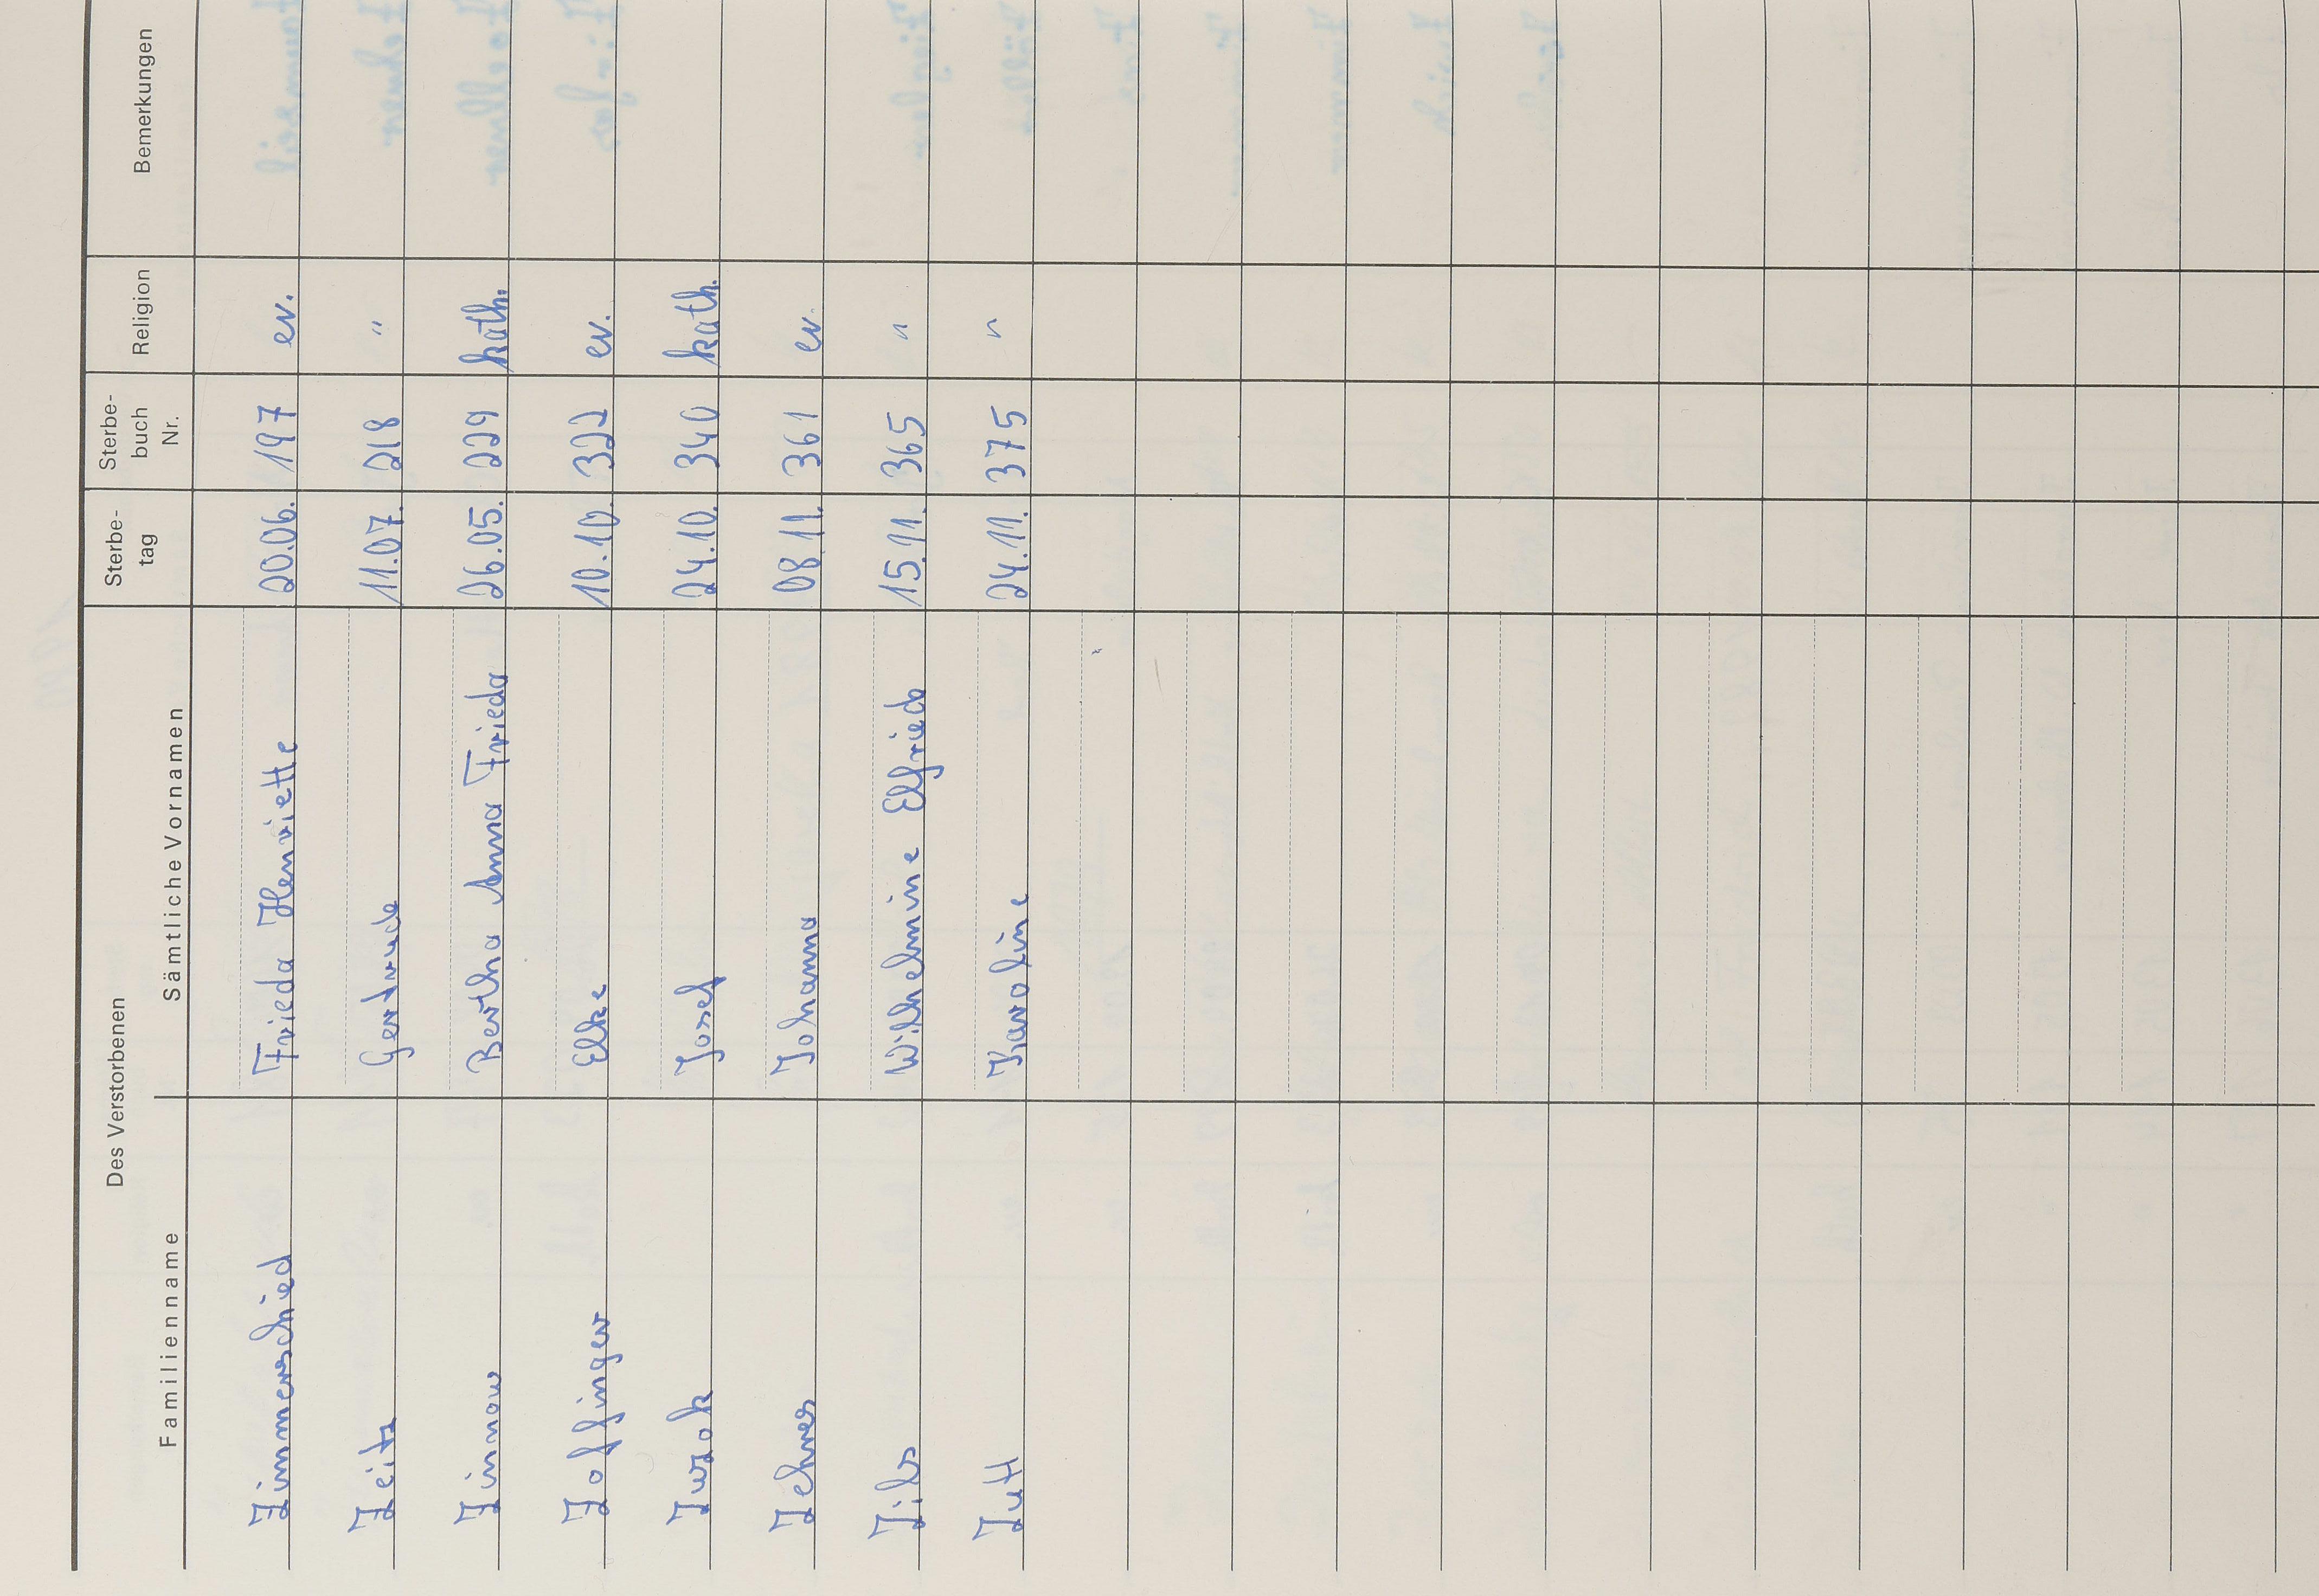 Des Verstorbenen Sterbe-tag Sterbe-buch Nr. Religion Bemerkungen
Familienname Sämtliche Vornamen
Zimmerschied Frieda Henriette 20.06. 197 ev.
Zeitz Gertrude 11.07. 218 "
Zinnow Bertha Anna Frieda 26.05. 229 kath.
Zolfinger Elke 10.10. 322 ev.
Zurok Josef 24.10. 340 kath.
Zehner Johanna 08.11. 361 ev.
Zils Wilhelmine Elfriede 15.11. 365 "
Zutt Karoline 24.11. 375 "